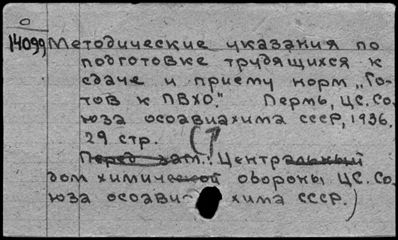 14099 Методические указания по
подготовке трудящихся к
сдаче и приему норм „Го-
тов к ПВХО." Пермь, ЦС. Со-
юза осоавиахима СССР, 1936.
29 стр.
(Перед загл.: Центральный
дом химической обороны ЦС. Со-
юза осоавиахима СССР.)